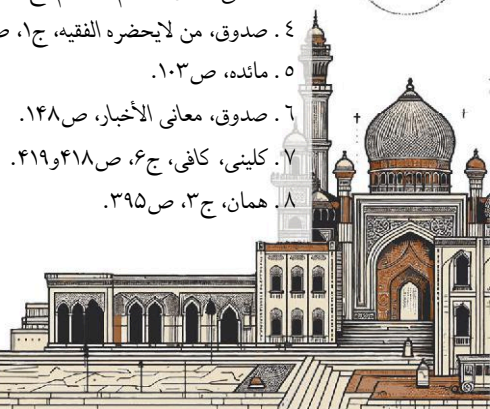 ٤. صدوق، من لایحضره الفقیه، ج۱،
٥. مائده، ص۱۰۳.
٦. صدوق، معانی الأخبار، ص۱۴۸.
٧. کلینی، کافی، ج۶، ص۴۱۸و۴۱۹.
٨. همان، ج۳، ص۳۹۵.